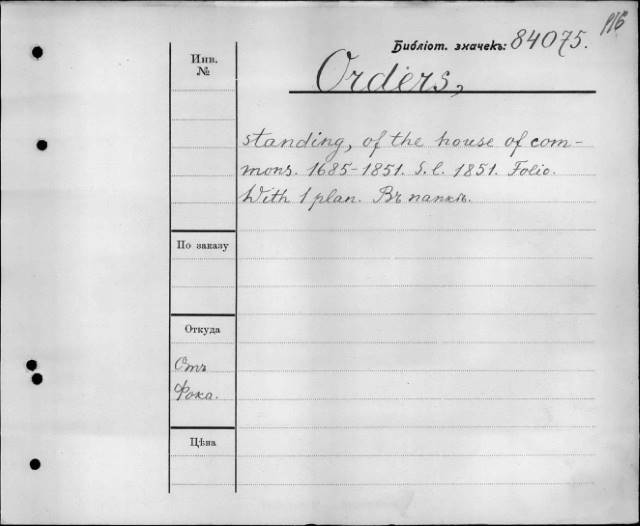 116
Библіот. значекъ: 84075.
Инв.
№
Orders,
standing, of the house of com-
mons. 1685-1851. S. l. 1851. Folio.
With 1 plan. Въ папкѣ.
По заказу
Откуда
Отъ
Фока.
Цѣна